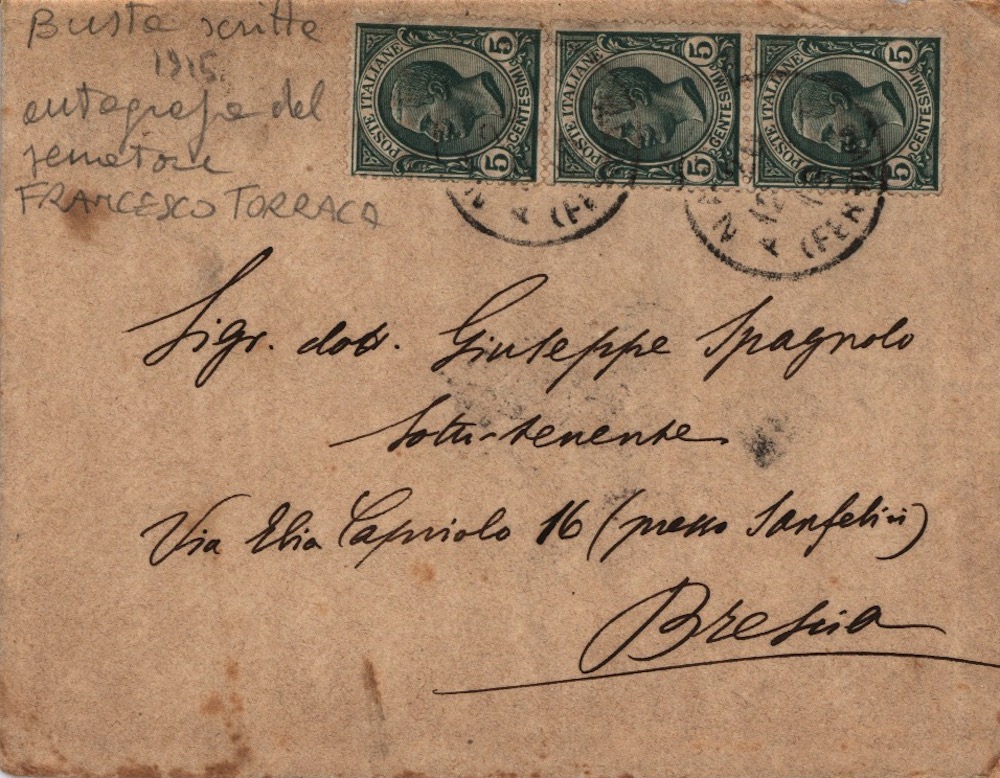 Busta scritta
1915.
autografa del
senatore
FRANCESCO TORRACA
POSTE ITALIANE 5 CENTESIMI 5
POSTE ITALIANE 5 CENTESIMI 5
POSTE ITALIANE 5 CENTESIMI 5
(FER
12
(FER
Sigr. dott. Giuseppe Spagnolo
Sotto-tenente
Via Elia Capriolo 16 (presso Sanfelici)
Brescia